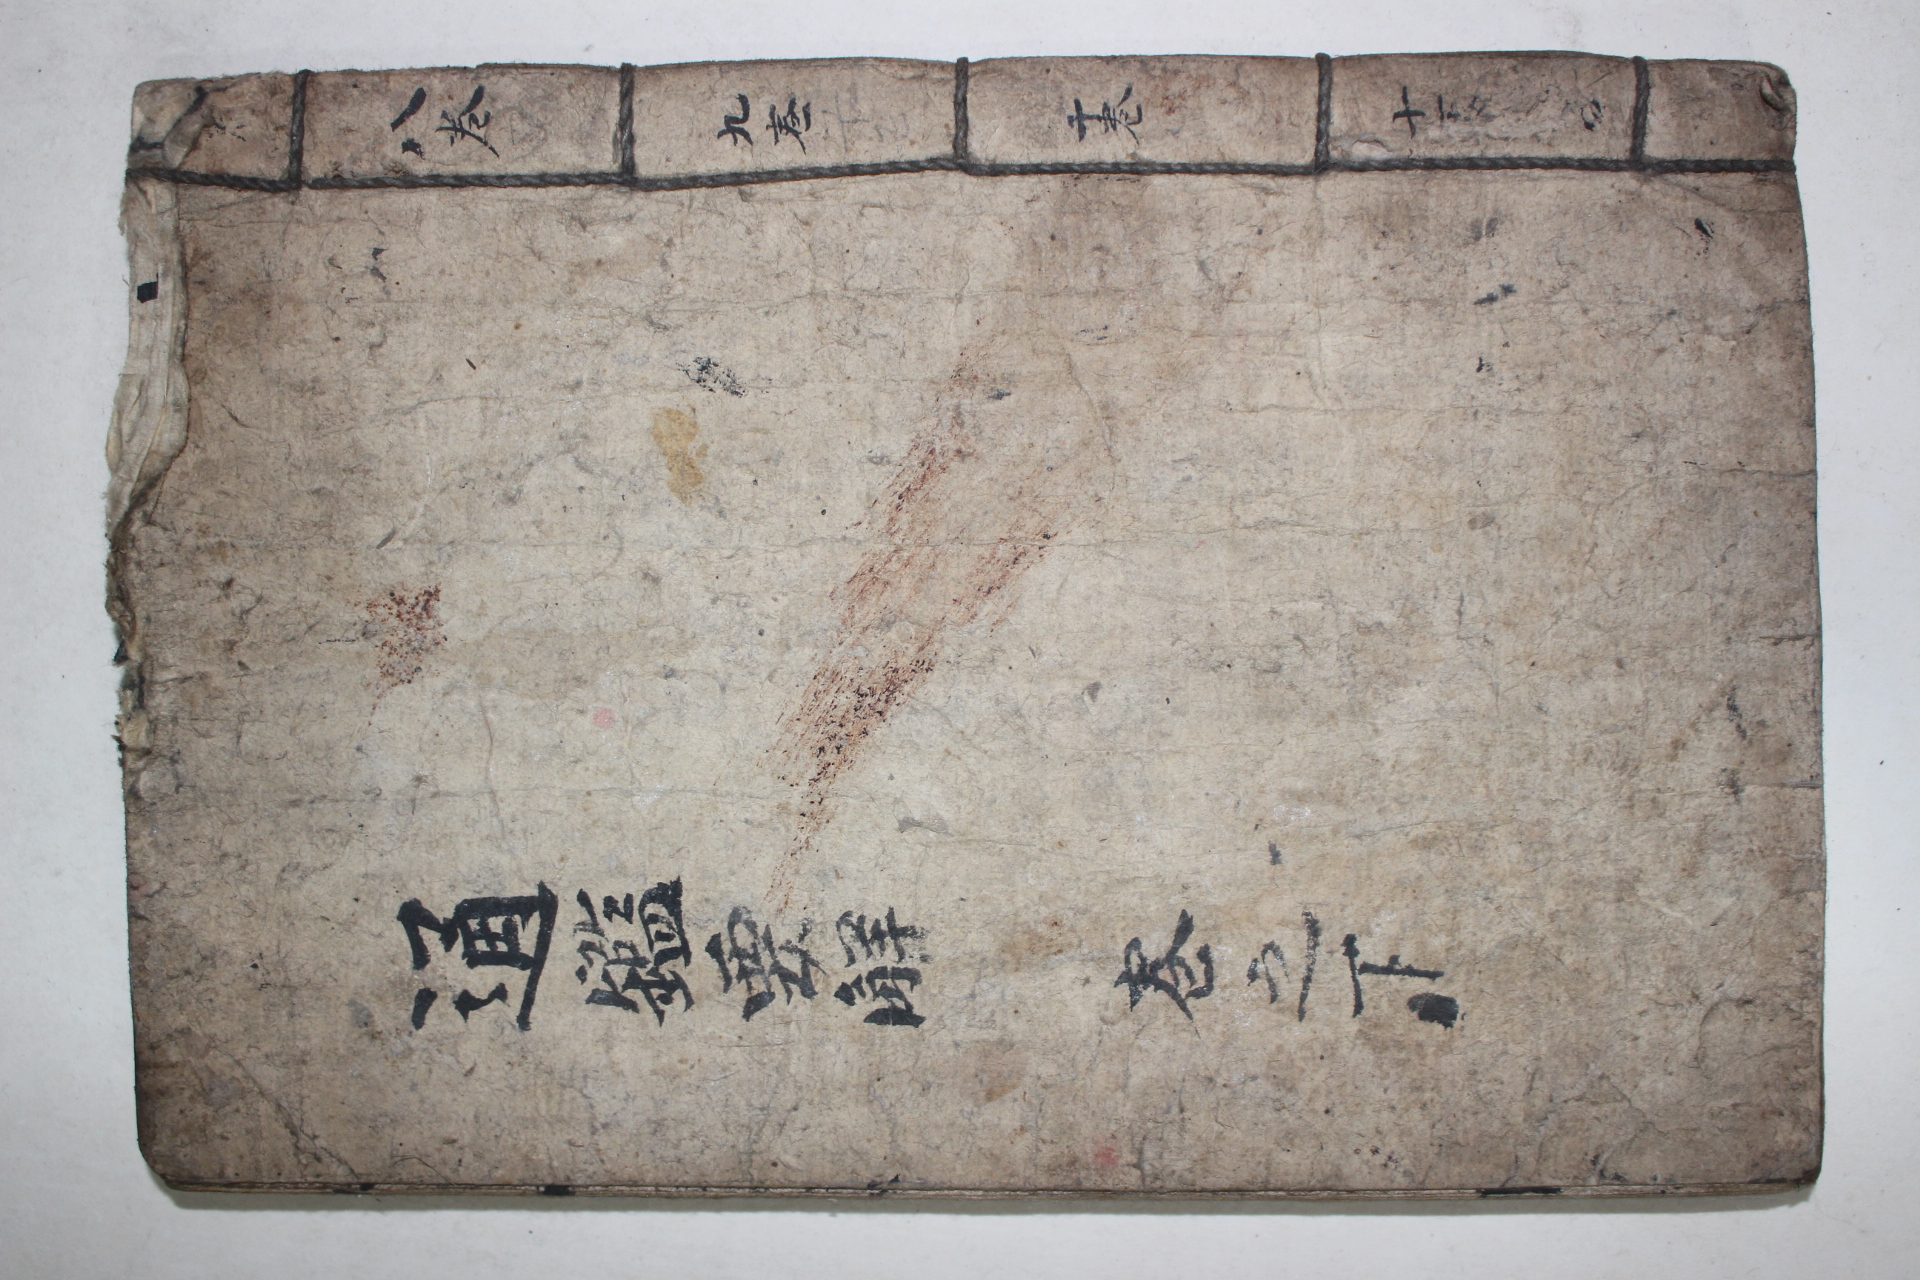 通鑑要解 卷之下
八卷
九卷
十卷
十一